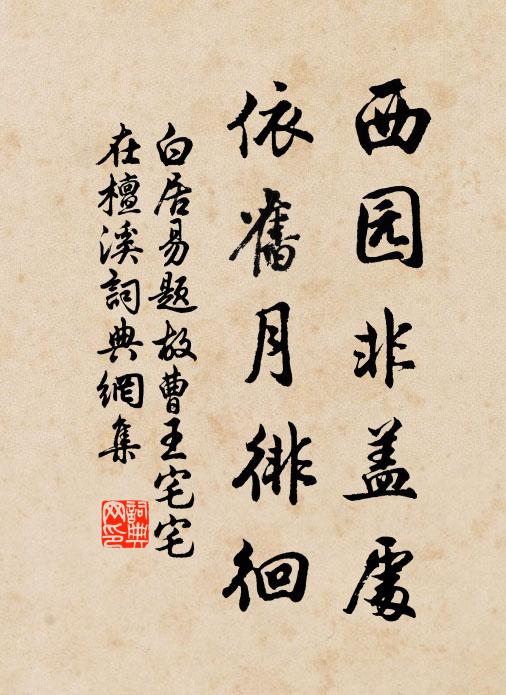 西园非盖處
依舊月徘徊
白居易题故曹王宅宅
在檀溪詞典網集
詞典
网印